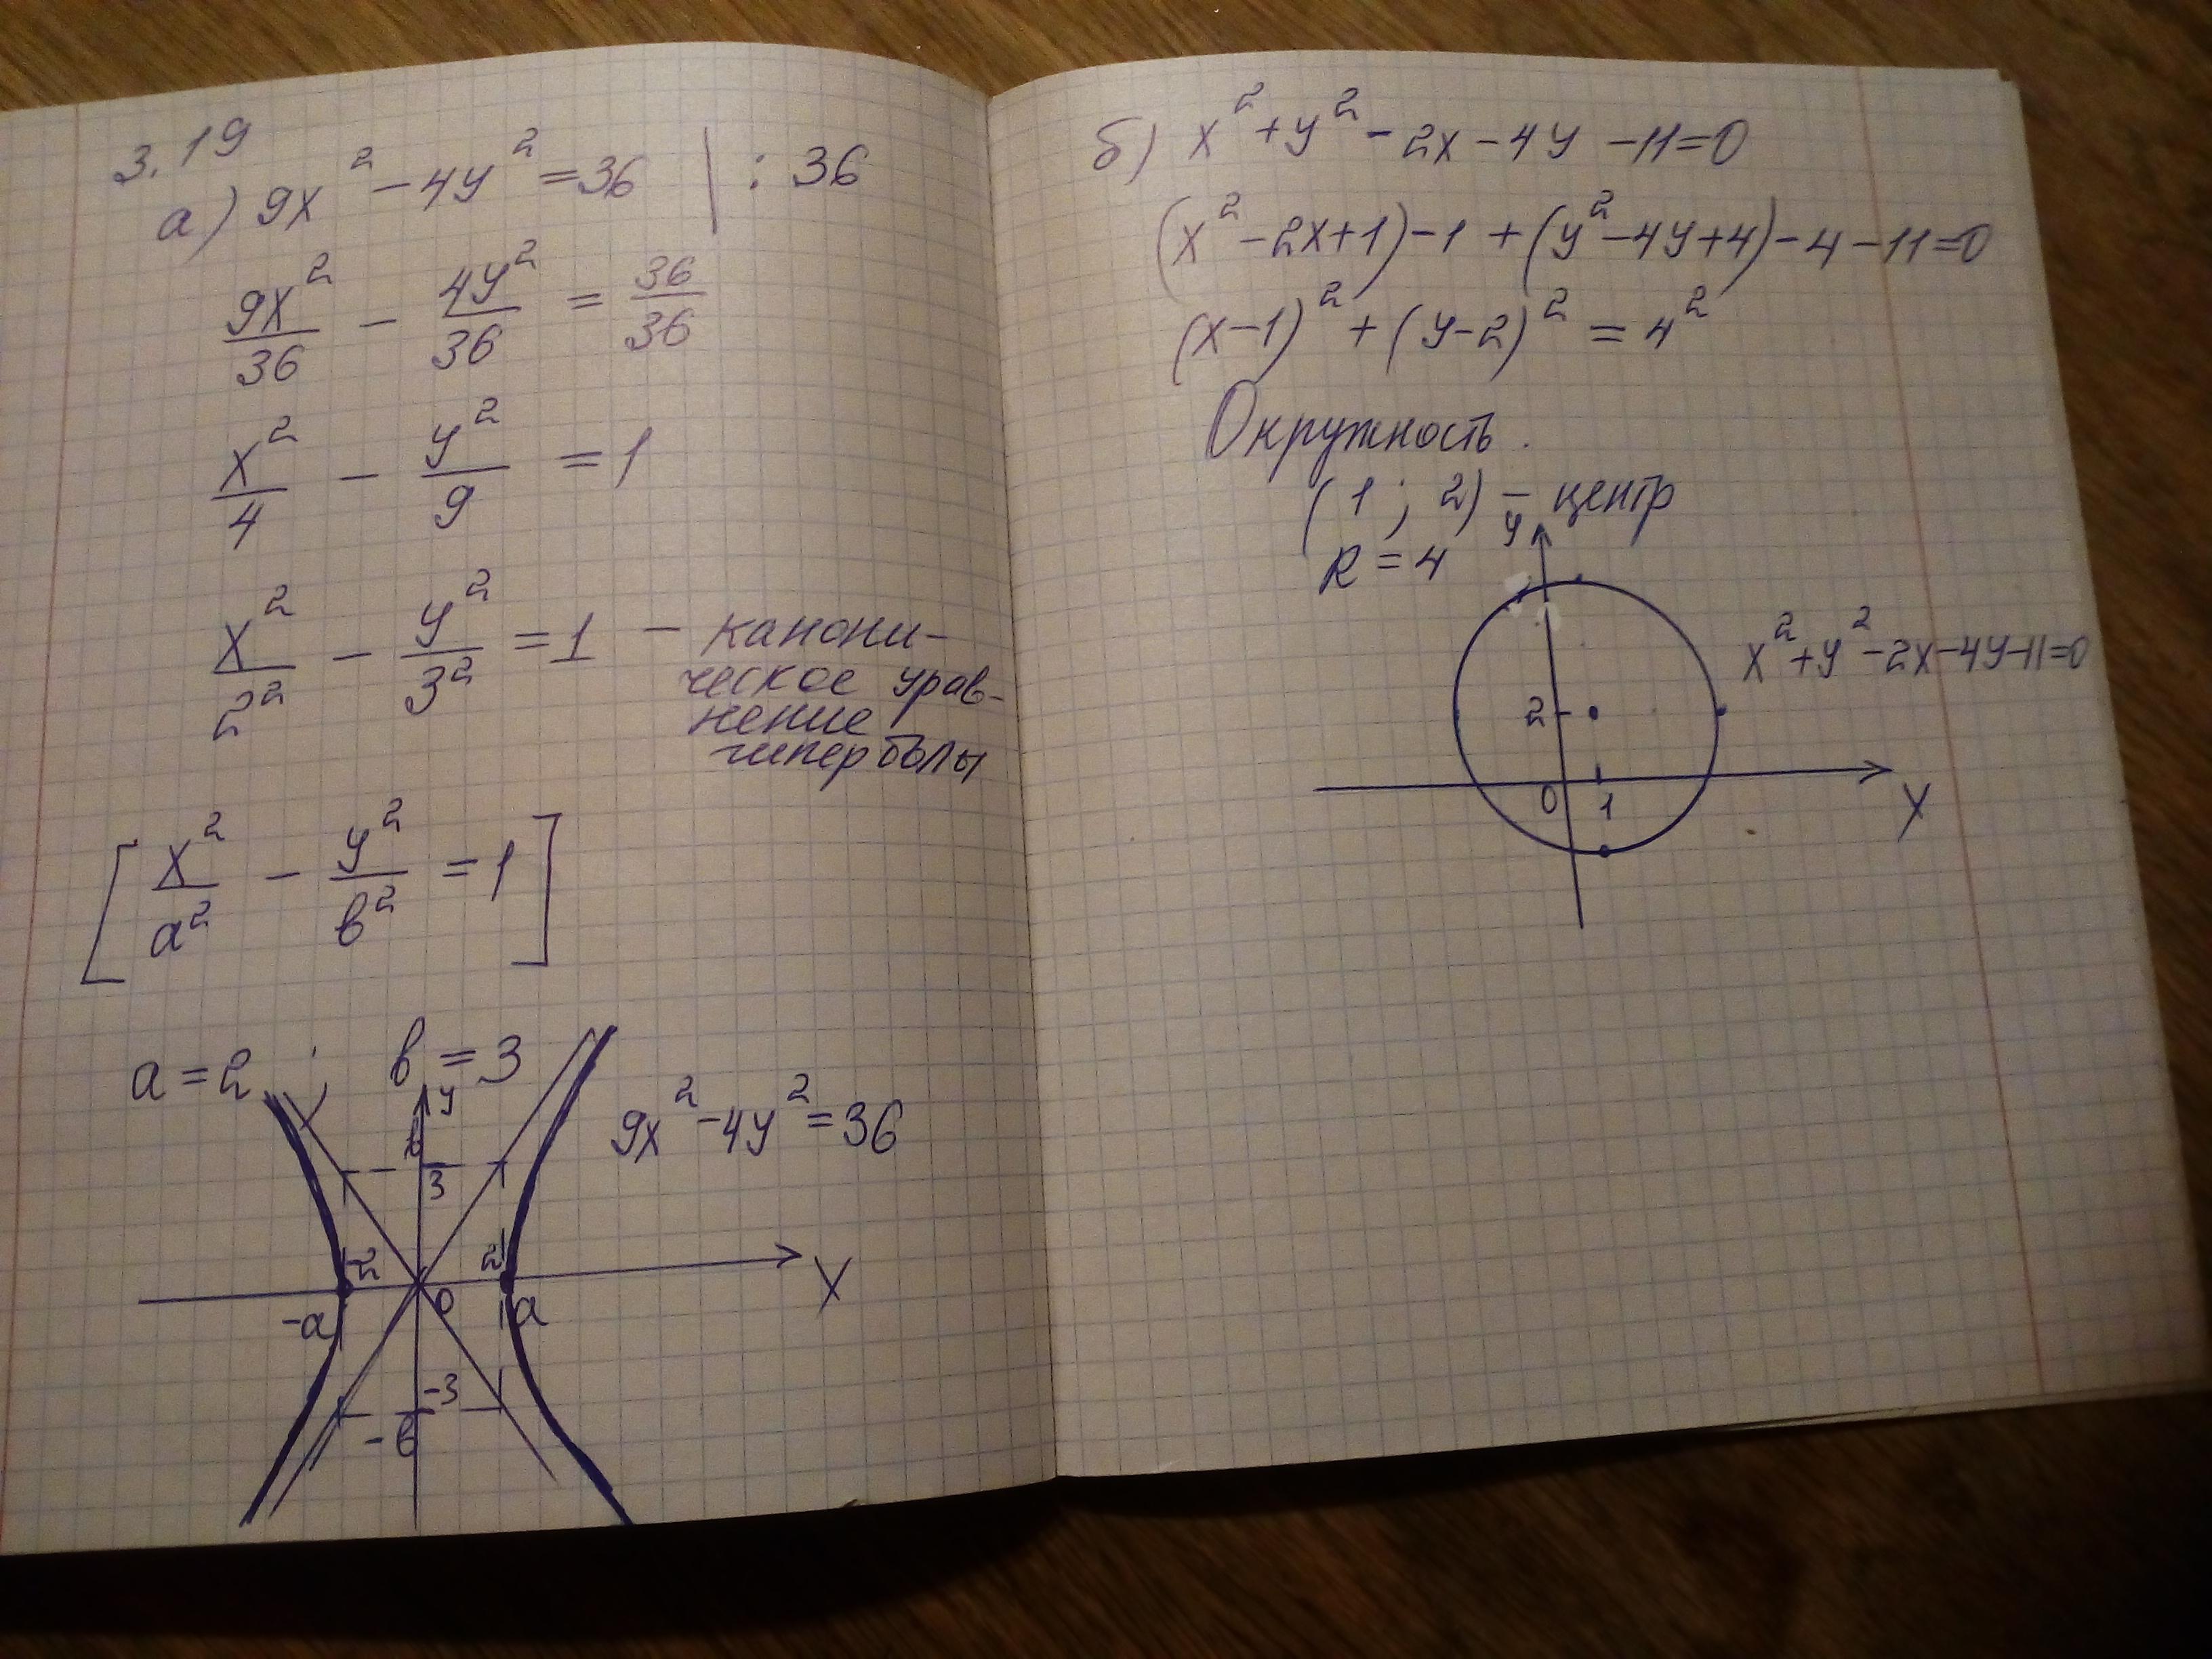 3.19
а) 9x² - 4y² = 36 | : 36
9x²/36 - 4y²/36 = 36/36
x²/4 - y²/9 = 1
x²/2² - y²/3² = 1 - канони-
ческое урав-
нение
гиперболы
[x²/a² - y²/b² = 1]
a = 2; b = 3
y
b
3
9x² - 4y² = 36
-2
2
x
-a
0
a
-3
-b
б) x² + y² - 2x - 4y - 11 = 0
(x² - 2x + 1) - 1 + (y² - 4y + 4) - 4 - 11 = 0
(x - 1)² + (y - 2)² = 4²
Окружность.
(1; 2) - центр
R = 4
y
x² + y² - 2x - 4y - 11 = 0
2
0
1
x